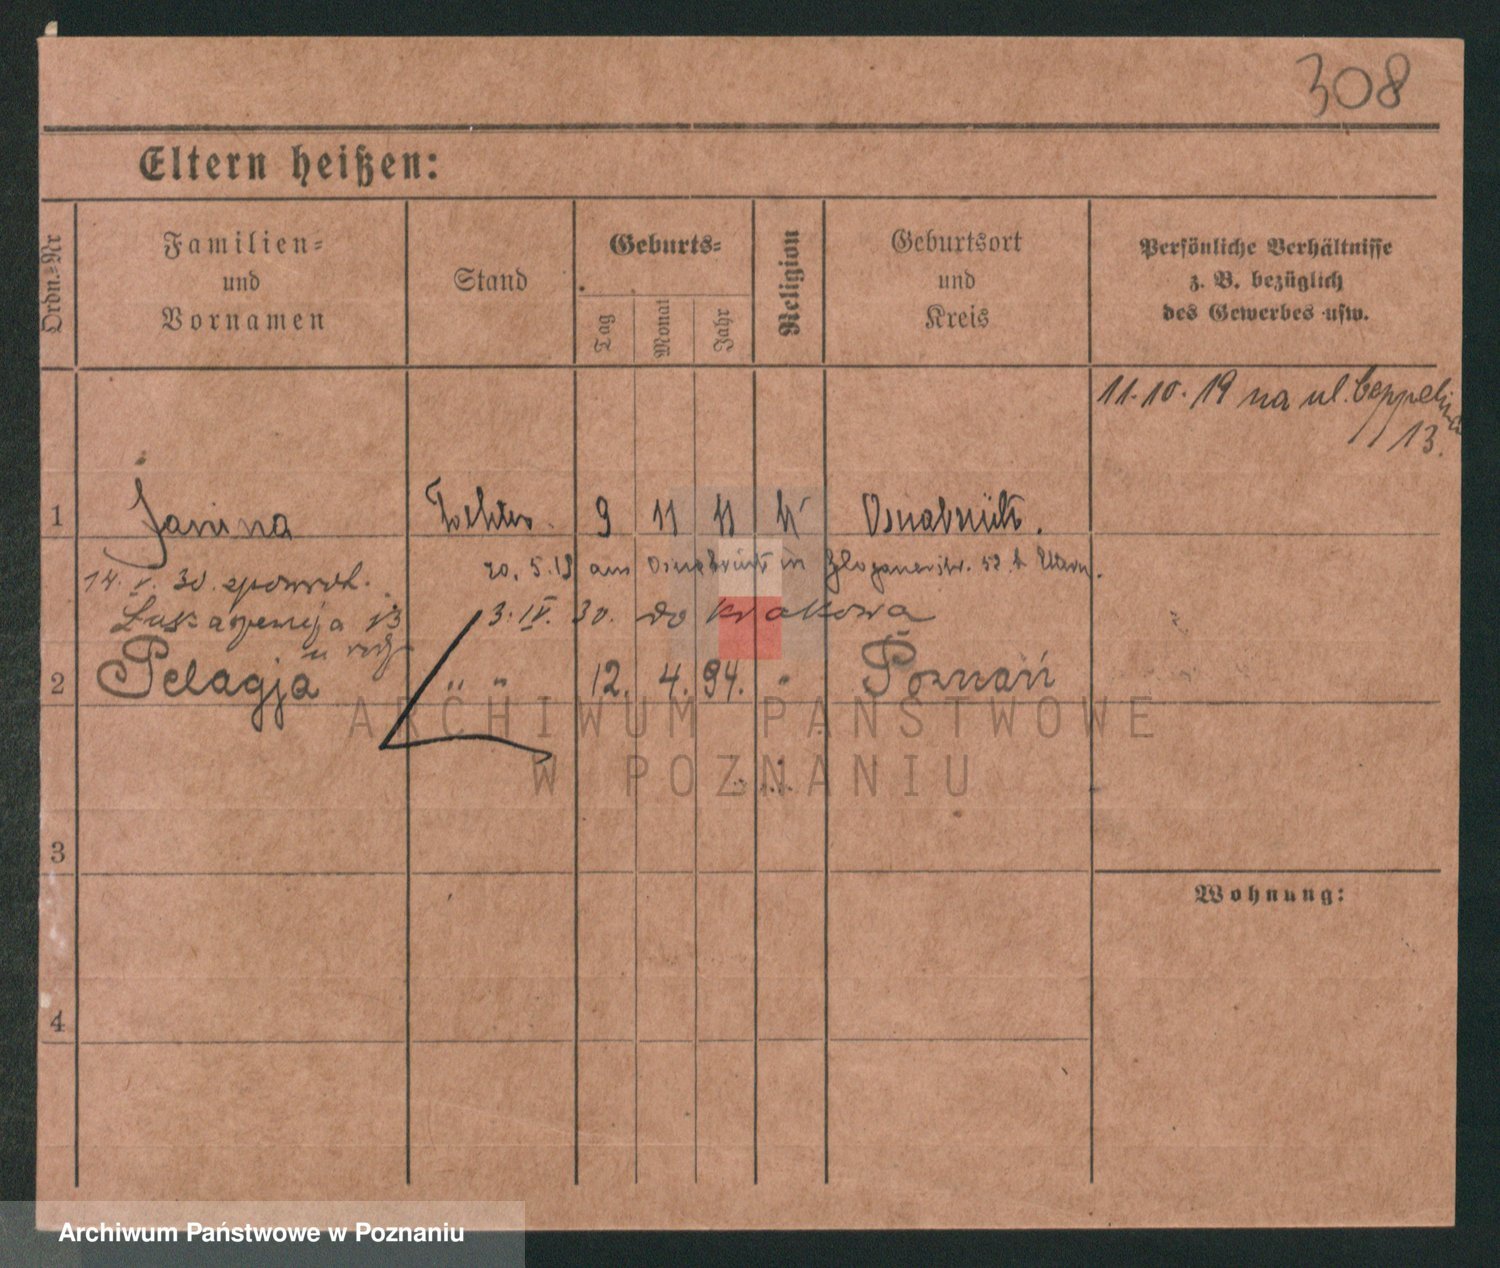 308
Eltern heißen:
Ordn.=Nr
Familien=
und
Vornamen
Stand
Geburts=
Tag
Monat
Jahr
Religion
Geburtsort
und
Kreis
Persönliche Verhältnisse
z. B. bezüglich
des Gewerbes usw.
11.10.19 na ul. Ceppelina
13.
1 Janina Tochter. 9 11 11 k Osnabrück.
20. 5. 19 aus Osnabrück in Glogauerstr. 52 b
14. V. 30 zpowrot.
3. IV. 30. do Krakowa
13
2 Pelagja " " 12. 4. 94. " Poznań
ARCHIWUM PAŃSTWOWE
W POZNANIU
3
Wohnung:
4
Archiwum Państwowe w Poznaniu